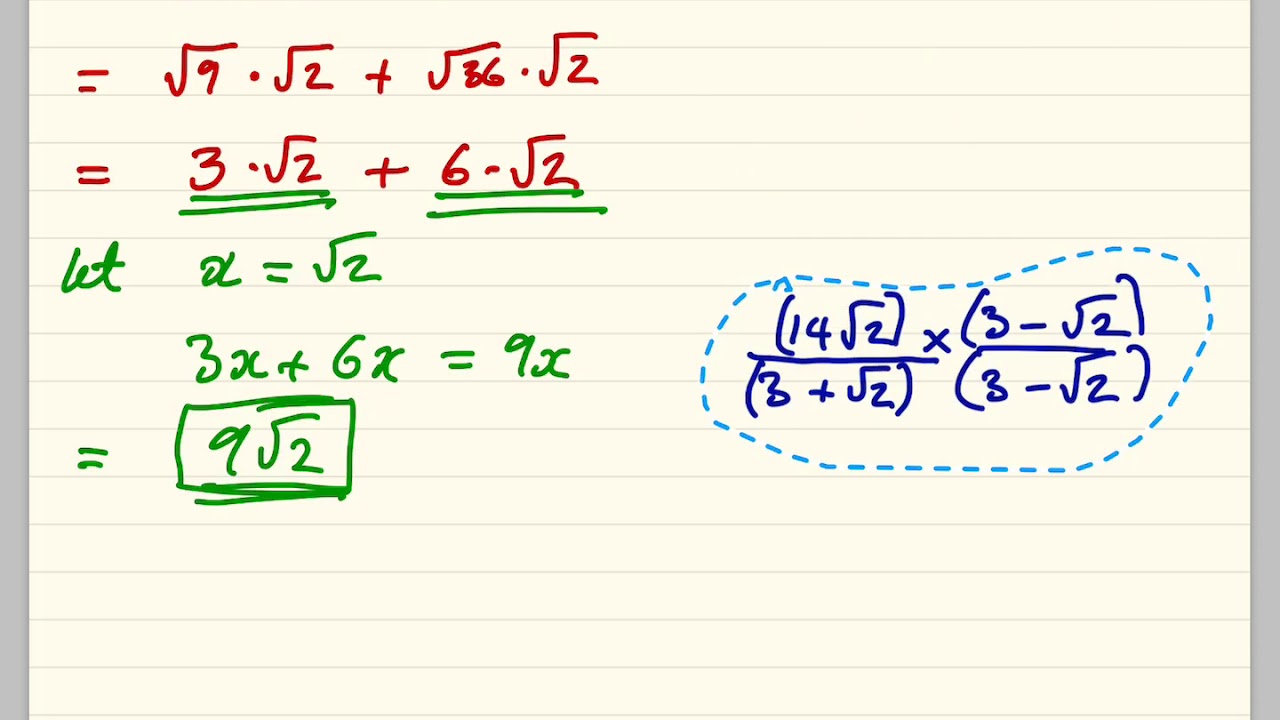 = √9 · √2 + √36 · √2
= 3 · √2 + 6 · √2
let x = √2
3x + 6x = 9x
= 9√2
(14√2) × (3 − √2)
(3 + √2) (3 − √2)